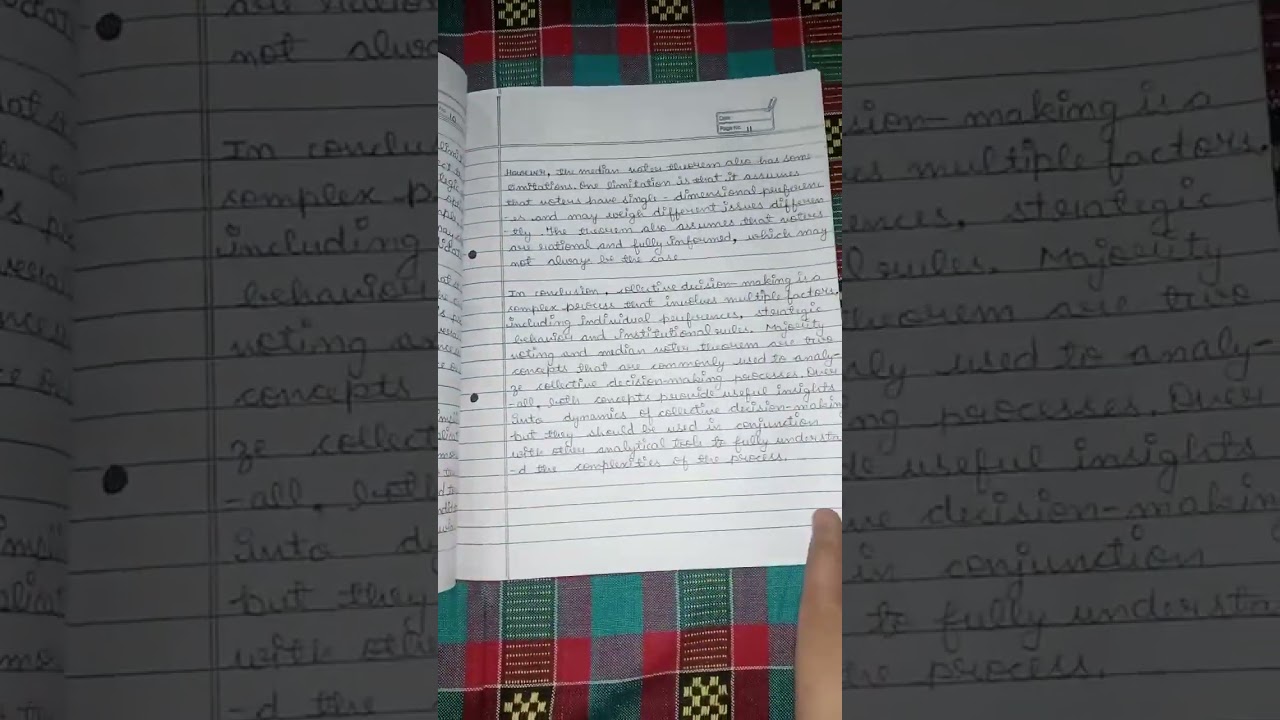 Date:
Page No. 11
However, the median voter theorem also has some
limitations. One limitation is that it assumes
that voters have single - dimensional preferenc
- es and may weigh different issues differen
- tly. The theorem also assumes that voters
are rational and fully informed, which may
not always be the case
In conclusion, collective decision-making is a
complex process that involves multiple factors,
including individual preferences, strategic
behaviour and institutional rules. Majority
voting and median voter theorem are two
concepts that are commonly used to analy-
ze collective decision-making processes. Over
-all, both concepts provide useful insights
into dynamics of collective decision-makin
but they should be used in conjunction
with other analytical tools to fully understan
-d the complexities of the process.